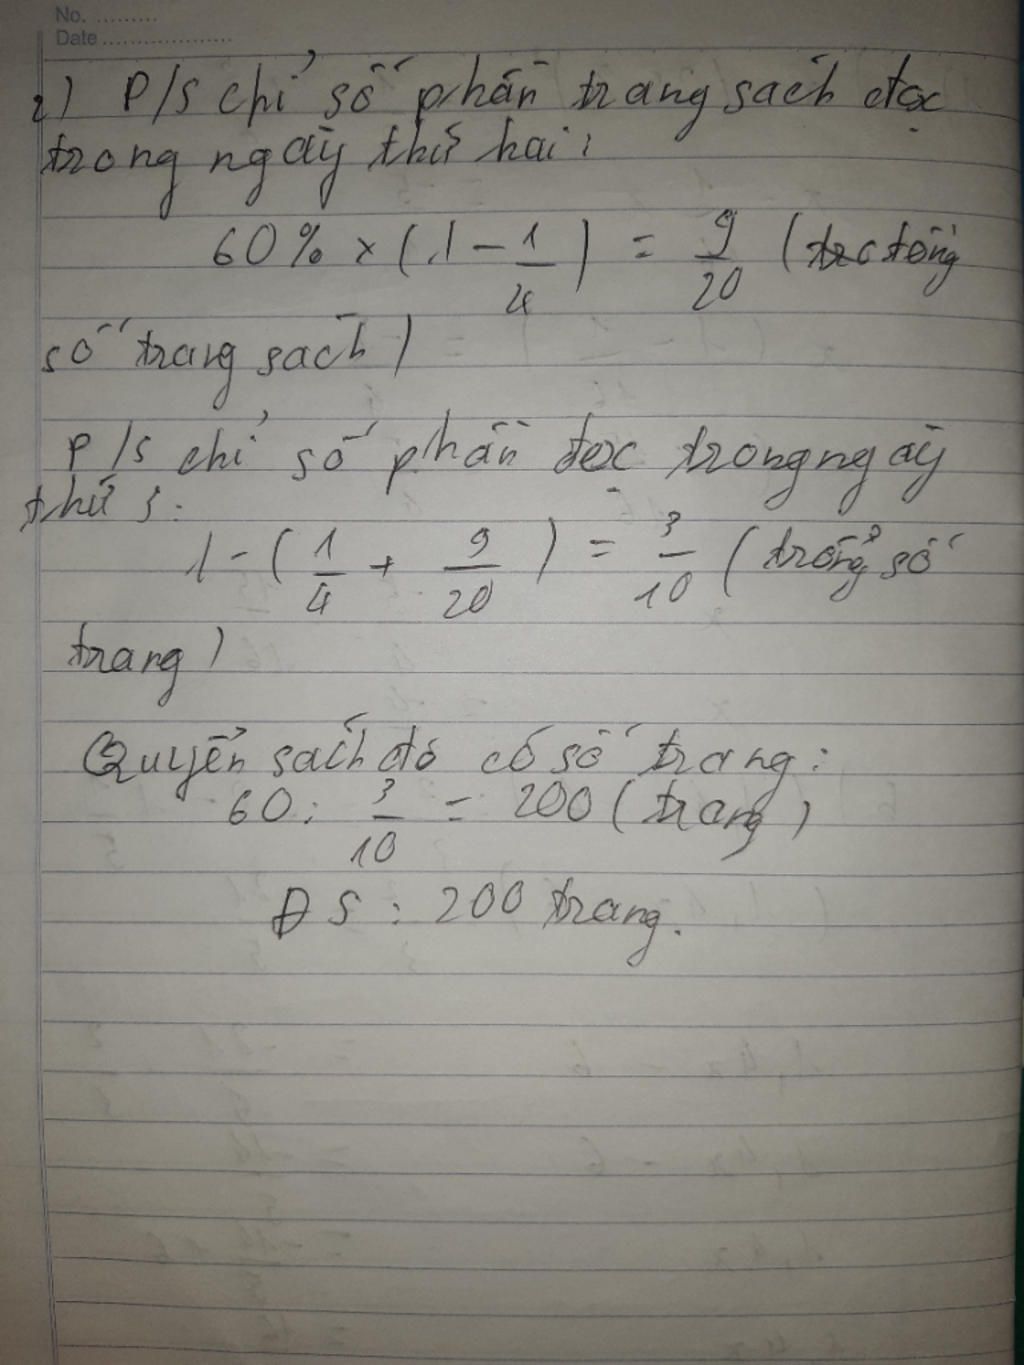 No. .........
Date ...................
2) P/S chỉ số phần trang sách đọc
trong ngày thứ hai:
60% × (1 - 1/4) = 9/20 (tổng
số trang sách)
P/S chỉ số phần đọc trong ngày
thứ 3:
1 - (1/4 + 9/20) = 3/10 (tổng số
trang)
Quyển sách đó có số trang:
60 : 3/10 = 200 (trang)
ĐS : 200 trang.